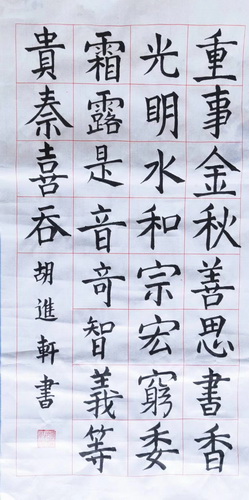 重事金秋善思書香
光明水和宗宏窮委
霜露是音奇智義等
貴泰喜吞
胡進軒書